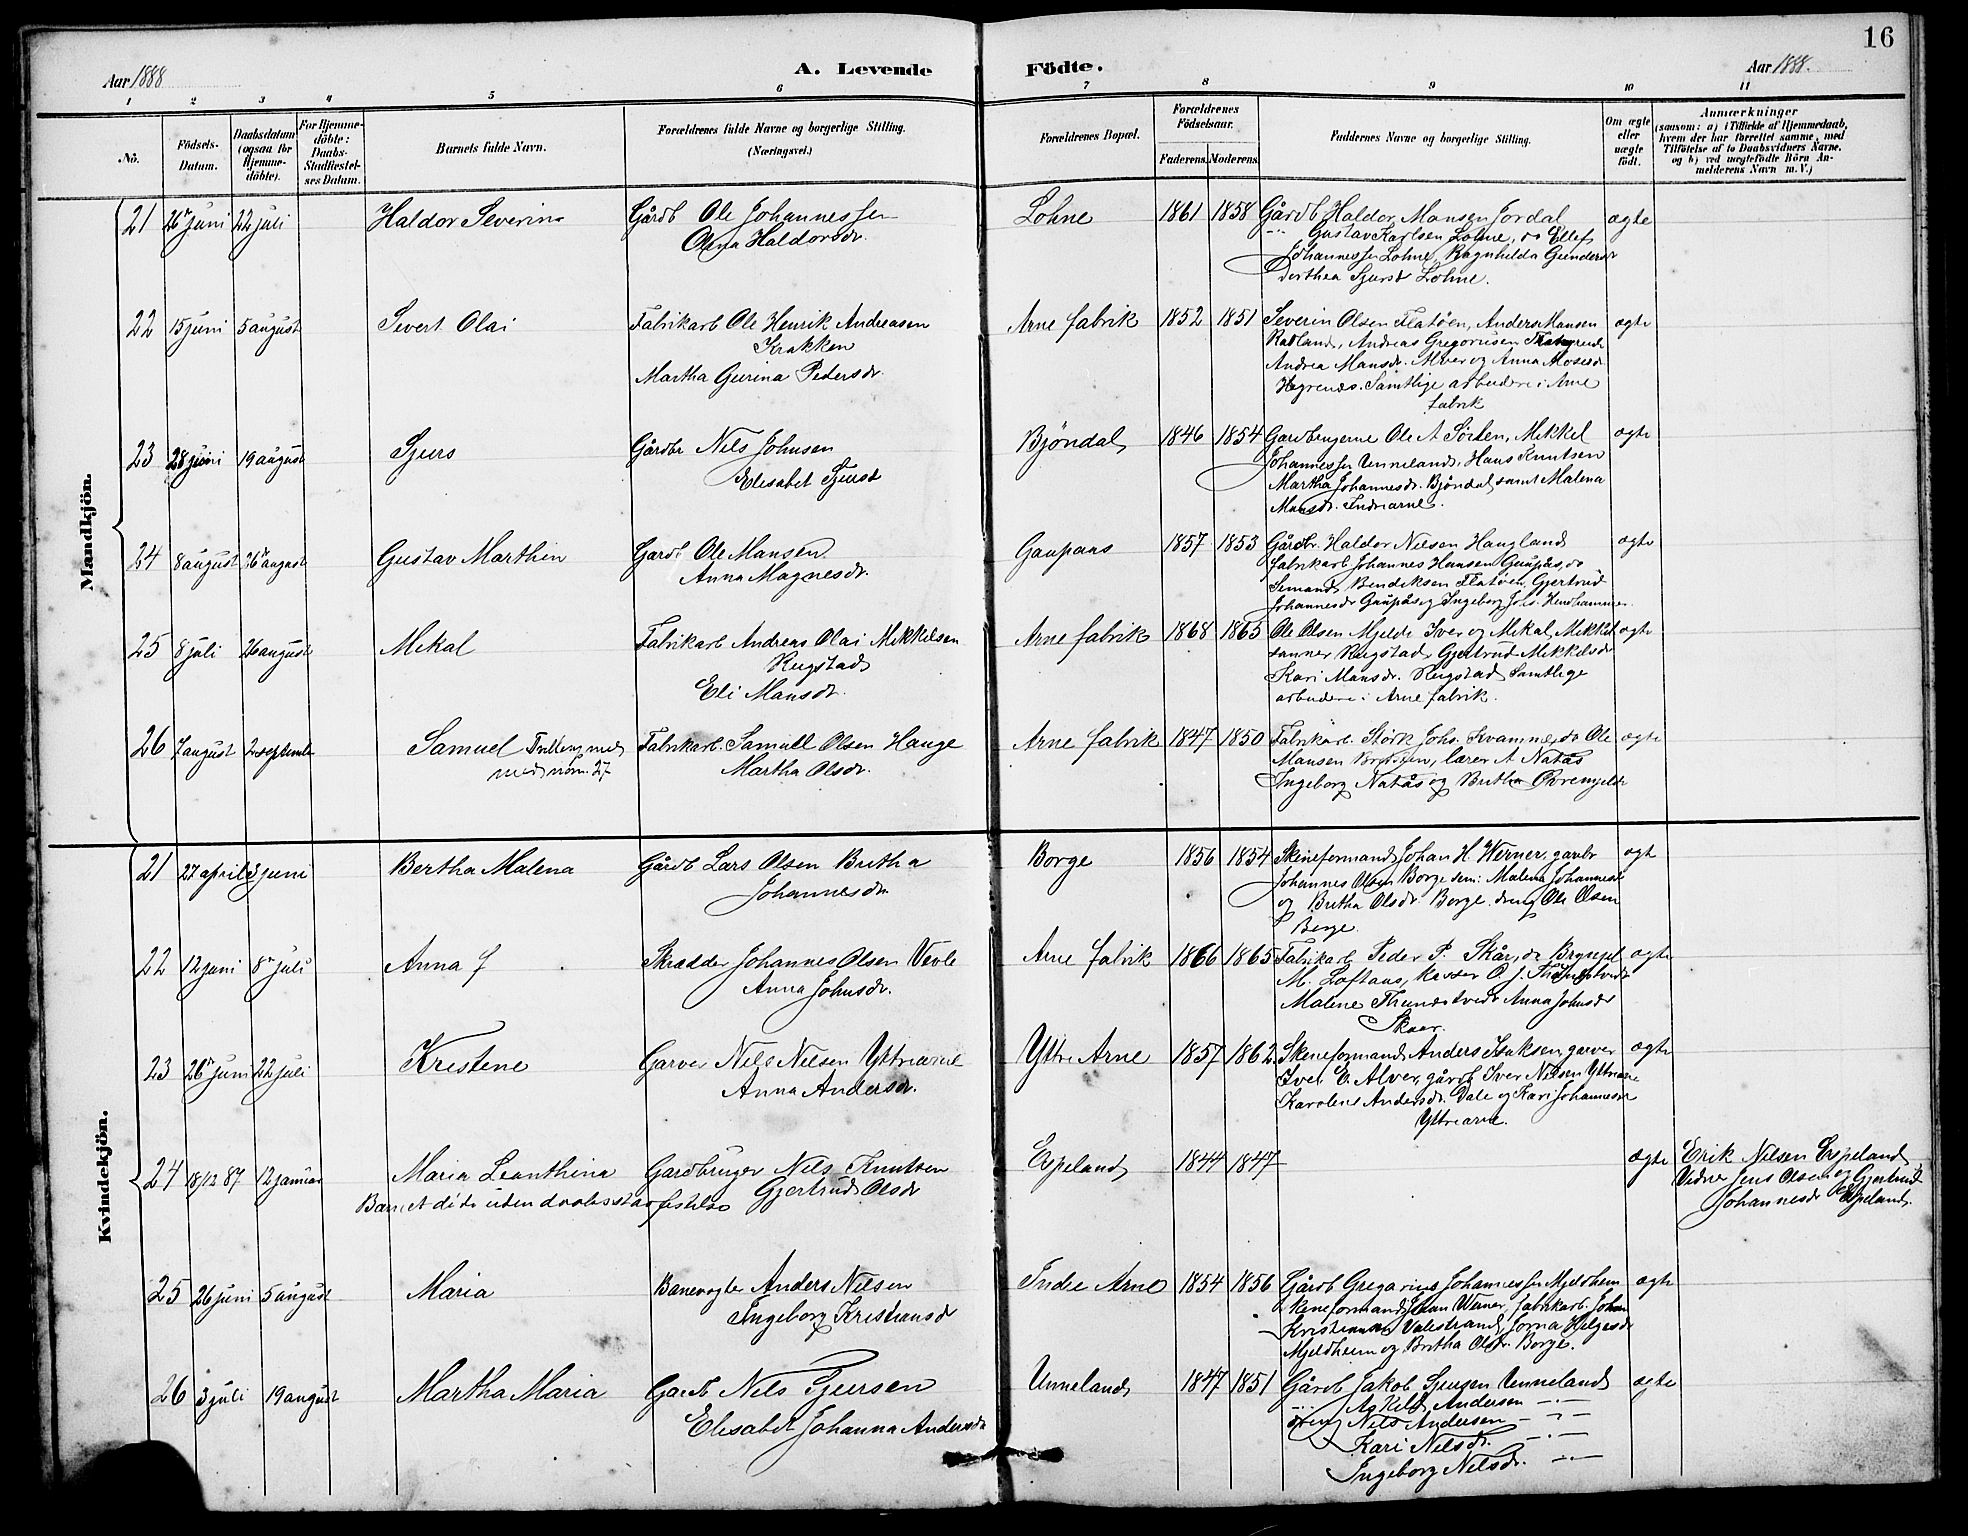 16
Aar 1888
A. Levende
Födte.
Aar 1888.
1 2 3 4 5 6 7 8 9 10 11
No.
Födsels-Datum.
Daabsdatum (ogsaa for Hjemmedöbte).
For Hjemmedöbte: Daabs-Stadfæstelses Datum.
Barnets fulde Navn.
Forældrenes fulde Navne og borgerlige Stilling.
(Næringsvei.)
Forældrenes Bopæl.
Forældrenes Födselsaar.
Faderens. Moderens.
Faddernes Navne og borgerlige Stilling.
Om ægte eller uægte födt.
Anmærkninger
(saasom: a) i Tilfælde af Hjemmedaab,
hvem der har forrettet samme, med
Tilföielse af to Daabsvidners Navne.
og b) ved uægtefödte Börn An-
melderens Navn m. V.)
Mandkjön.
21 26 juni 22 juli Haldor Severin Gårdb Ole Johannessen Lohne 1861 1858 Gårdb Haldor Mansen Jordal ægte
Olena Haldorsdr. Gustav Karlsen Lohne, do Ellef
Johannessen Lohne, Ragnhilda Gundersdr
Dorthea Sjursd Lohne.
22 15 juni 5 august Severt Olai Fabrikarb Ole Henrik Andreasen Arne fabrik 1852 1851 Severin Olsen Flatöen, Anders Mansen ægte
Krakken Radland, Andreas Gregoriusen
Martha Gurina Pedersdr. Andrea Mansdr. Alver og Anna Mosesdr
Hegrenæs. Samtlige arbeidere i Arne
fabrik
23 28 juni 19 august Sjurs Gårdbr Nils Johnsen Bjöndal 1846 1854 Gardbrugerne Ole A Sörten, Mikkel ægte
Elisabet Sjursd Johannessen Unneland, Hans Knutsen
Martha Johannesdr. Bjöndal, samt Malena
Mansdr. Indrearne.
24 8 august 26 august Gustav Marthin Gardb Ole Mansen Gaupaas 1857 1853 Gårdbr. Haldor Nilsen Haugland ægte
Anna Magnesdr. fabrikarb Johannes Hansen Gaupås, do
Simand Bendiksen Flatöen, Gjertrud
Johannesdr Gaupås og Ingeborg Johs.
25 8 juli 26 august Mikal Fabrikarb Andreas Olai Mikkelsen Arne fabrik 1868 1865 Ole Olsen Mjelde Iver og Mikal Mikkel ægte
Rugstad sønner Rugstad, Gjertrud Mikkelsdr
Eli Mansdr. Kari Mansdr. Rugstad Samtlige
arbeidere i Arne fabrik.
26 7 august 2 september Samuel Tvilling med Fabrikarb. Samuel Olsen Hauge Arne fabrik 1847 1850 Fabrikarb. Störk Johs. Kvamme, do Ole ægte
med num. 27 Martha Olsdr. Mansen, lærer A Natås
Ingeborg Natås og Britha Övremjelde
Kvindekjön.
21 27 april 3 juni Bertha Malena Gårdb Lars Olsen Britha Borge 1856 1854 Skineformand Johan H. Werner, garbr ægt
Johannesdr Johannes Olsen Borge sem: Malena Johannesd
og Britha Olsdr Borge. dreng Ole Olsen
Borge.
22 12 juni 8 juli Anna Skrædder Johannes Olsen Vevle Arne fabrik 1866 1865 Fabrikarb Peder P. Skår, do Brynjel ægte
Anna Johnsdr. M. Loftaas, kasser O. J.
Malene Anna Johnsdr
Skaar.
23 26 juni 22 juli Kristene Garver Nils Nilsen Yttrearne Yttre Arne 1857 1862 Skineformand Anders Isaksen, garver ægte
Anna Andersdr. Iver E. Alver, gårdb Iver Nilsen Yttrearne
Karolene Andersdr. Dale og Kari Johannesdr
Yttrearne.
24 18/12 87 12 januar Maria Leanthina Gardbruger Nils Knutsen Espeland 1844 1847 ægte Erik Nilsen Espeland
Barnet döde uden daabsstadfestelse Gjertrud Olsdr Vidner Jens Olsen og Gjertrud
Johannesdr Espeland.
25 26 juni 5 august Maria Banevogter Anders Nilsen Indre Arne 1854 1856 Gårdb Gregarius Johannessen Mjeldheim ægte
Ingeborg Kristiansdr skineformand Johan Werner, fabrikarb. Johan
Kristiansen Valestrand, Jorna Helgesdr
Mjeldheim og Britha Olsdr. Borge.
26 3 juli 19 august Martha Maria Gardb Nils Sjursen Unneland 1847 1851 Gårdb Jakob Sjursen Unneland ægte
Elisabet Johanna Andersdr Askild Andersen
dreng Nils Andersen
Kari Nilsdr.
Ingeborg Nilsdr.